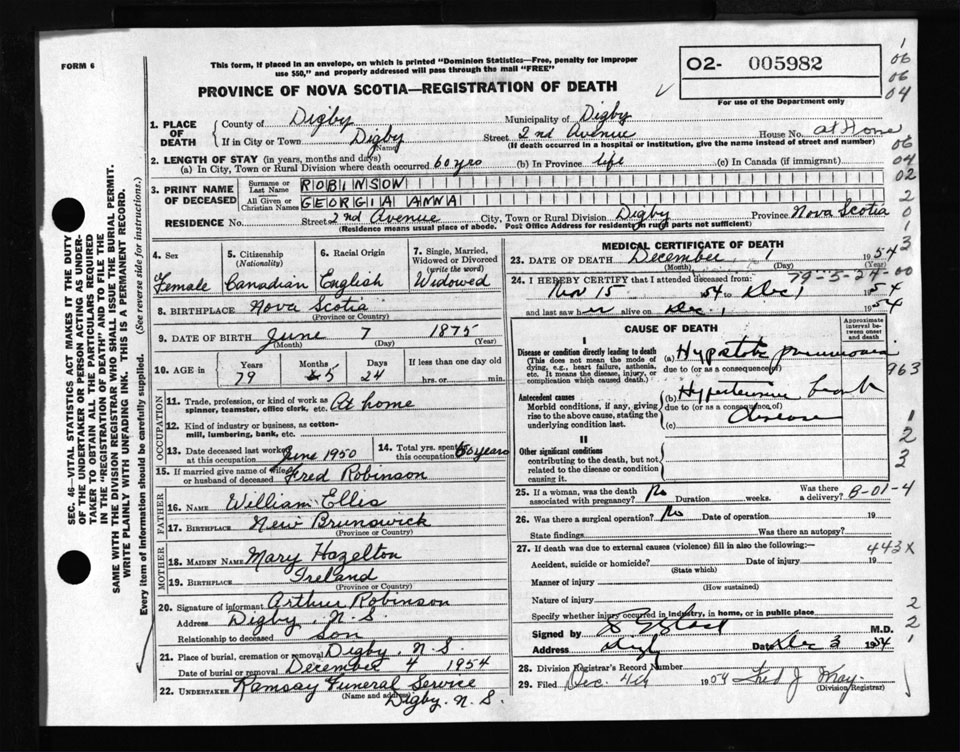 FORM 6
This form, if placed in an envelope, on which is printed "Dominion Statistics—Free, penalty for improper
use $50," and properly addressed will pass through the mail "FREE"
PROVINCE OF NOVA SCOTIA—REGISTRATION OF DEATH
O2- 005982
For use of the Department only
1. PLACE OF DEATH
County of Digby Municipality of Digby
If in City or Town Digby Street 2nd Avenue House No. at Home
(Name) (If death occurred in a hospital or institution, give the name instead of street and number)
2. LENGTH OF STAY (in years, months and days)
(a) In City, Town or Rural Division where death occurred 60 yrs (b) In Province life (c) In Canada (if immigrant)
3. PRINT NAME OF DECEASED
Surname or Last Name ROBINSON
All Given or Christian Names GEORGIA ANNA
RESIDENCE No. Street 2nd Avenue City, Town or Rural Division Digby Province Nova Scotia
(Residence means usual place of abode. Post Office Address for residents in rural parts not sufficient)
4. Sex
Female
5. Citizenship
(Nationality)
Canadian
6. Racial Origin
English
7. Single, Married, Widowed or Divorced
(write the word)
Widowed
8. BIRTHPLACE Nova Scotia
(Province or Country)
9. DATE OF BIRTH June 7 1875
(Month) (Day) (Year)
10. AGE in
Years Months Days If less than one day old
79 5 24 hrs. or min.
OCCUPATION
11. Trade, profession, or kind of work as
spinner, teamster, office clerk, etc. At home
12. Kind of industry or business, as cotton-
mill, lumbering, bank, etc.
13. Date deceased last worked at this occupation June 1950
14. Total yrs. spent in this occupation 60 years
15. If married give name of wife or husband of deceased Fred Robinson
FATHER
16. NAME William Ellis
17. BIRTHPLACE New Brunswick
(Province or Country)
MOTHER
18. MAIDEN NAME Mary Hazelton
19. BIRTHPLACE Ireland
(Province or Country)
20. Signature of informant Arthur Robinson
Address Digby, N.S.
Relationship to deceased Son
21. Place of burial, cremation or removal Digby, N.S.
Date of burial or removal December 4 1954
22. UNDERTAKER Ramsay Funeral Service
(Name and address)
Digby. N. S.
MEDICAL CERTIFICATE OF DEATH
23. DATE OF DEATH December 1 1954
(Month) (Day) (Year)
79-5-24-00
24. I HEREBY CERTIFY that I attended deceased from:
Nov 15 54 to Dec 1 54
and last saw her alive on Dec. 1 1954
CAUSE OF DEATH
Approximate interval between onset and death
I
Disease or condition directly leading to death
(This does not mean the mode of dying, e.g., heart failure, asthenia, etc. It means the disease, injury, or complication which caused death.)
(a) Hypostatic pneumonia
due to (or as a consequence of)
Antecedent causes
Morbid conditions, if any, giving rise to the above cause, stating the underlying condition last.
(b) Hypertensive heart
due to (or as a consequence of)
disease
(c)
II
Other significant conditions
contributing to the death, but not related to the disease or condition causing it.
963
25. If a woman, was the death associated with pregnancy? No Duration weeks. Was there a delivery?
8-01-4
26. Was there a surgical operation? No Date of operation 19
State findings Was there an autopsy?
27. If death was due to external causes (violence) fill in also the following:—
443X
Accident, suicide or homicide? Date of injury 19
(State which)
Manner of injury
(How sustained)
Nature of injury
Specify whether injury occurred in industry, in home, or in public place
Signed by M.D.
Address Digby Date Dec 3 1954
28. Division Registrar's Record Number
29. Filed Dec. 4th 1954 Fred J May
(Division Registrar)
SEC. 46—VITAL STATISTICS ACT MAKES IT THE DUTY
OF THE UNDERTAKER OR PERSON ACTING AS UNDER-
TAKER TO OBTAIN ALL THE PARTICULARS REQUIRED
IN THE "REGISTRATION OF DEATH" AND TO FILE THE
SAME WITH THE DIVISION REGISTRAR WHO SHALL ISSUE THE BURIAL PERMIT.
WRITE PLAINLY WITH UNFADING INK. THIS IS A PERMANENT RECORD.
Every item of information should be carefully supplied. (See reverse side for instructions.)
1
06
06
04
06
04
02
2
0
1
3
1
2
3
2
2
1